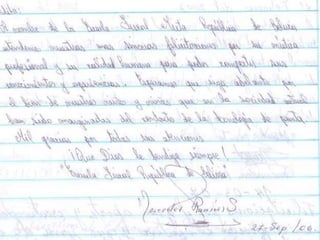 A nombre de la Escuela Fiscal Mixta República de Bolivia
nuestras mas sinceras felicitaciones por su mística
profesional y su calidad humana para poder compartir sus
conocimientos y experiencias. Esperamos que siga adelante por
el bien de nuestros niños y niñas que en la sociedad actual
han sido marginados del contexto de la tecnología de punta.
Mil gracias por todas sus atenciones
¡Que Dios le bendiga siempre!
"Escuela Fiscal República de Bolivia"
Ramírez S
27-Sep/06.